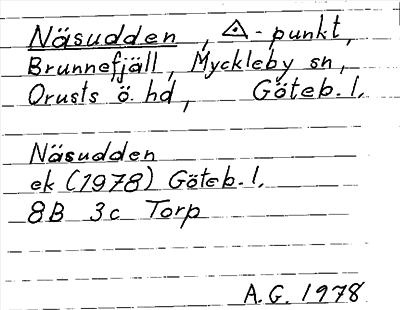 Näsudden, △-punkt,
Brunnefjäll, Myckleby sn,
Orusts ö. hd, Göteb. l.
Näsudden
ek (1978) Göteb. l.
8B 3c Torp
A.G. 1978